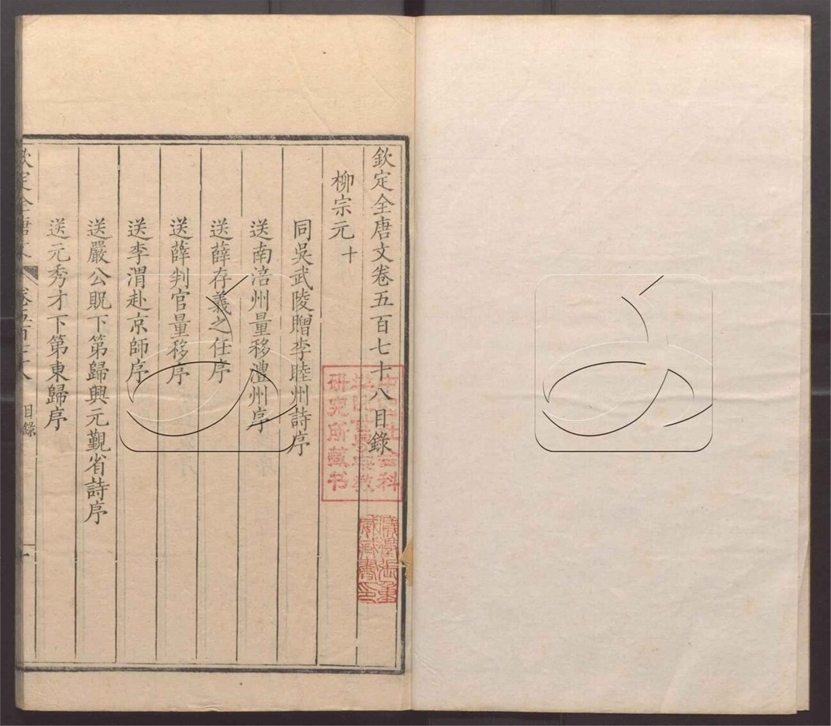 欽定全唐文卷五百七十八目錄
柳宗元十
同吳武陵贈李睦州詩序
送南涪州量移澧州序
送薛存義之任序
送薛判官量移序
送李渭赴京師序
送嚴公貺下第歸興元覲省詩序
送元秀才下第東歸序
欽定全唐文 卷五百七十八 目錄 一
研究所藏书